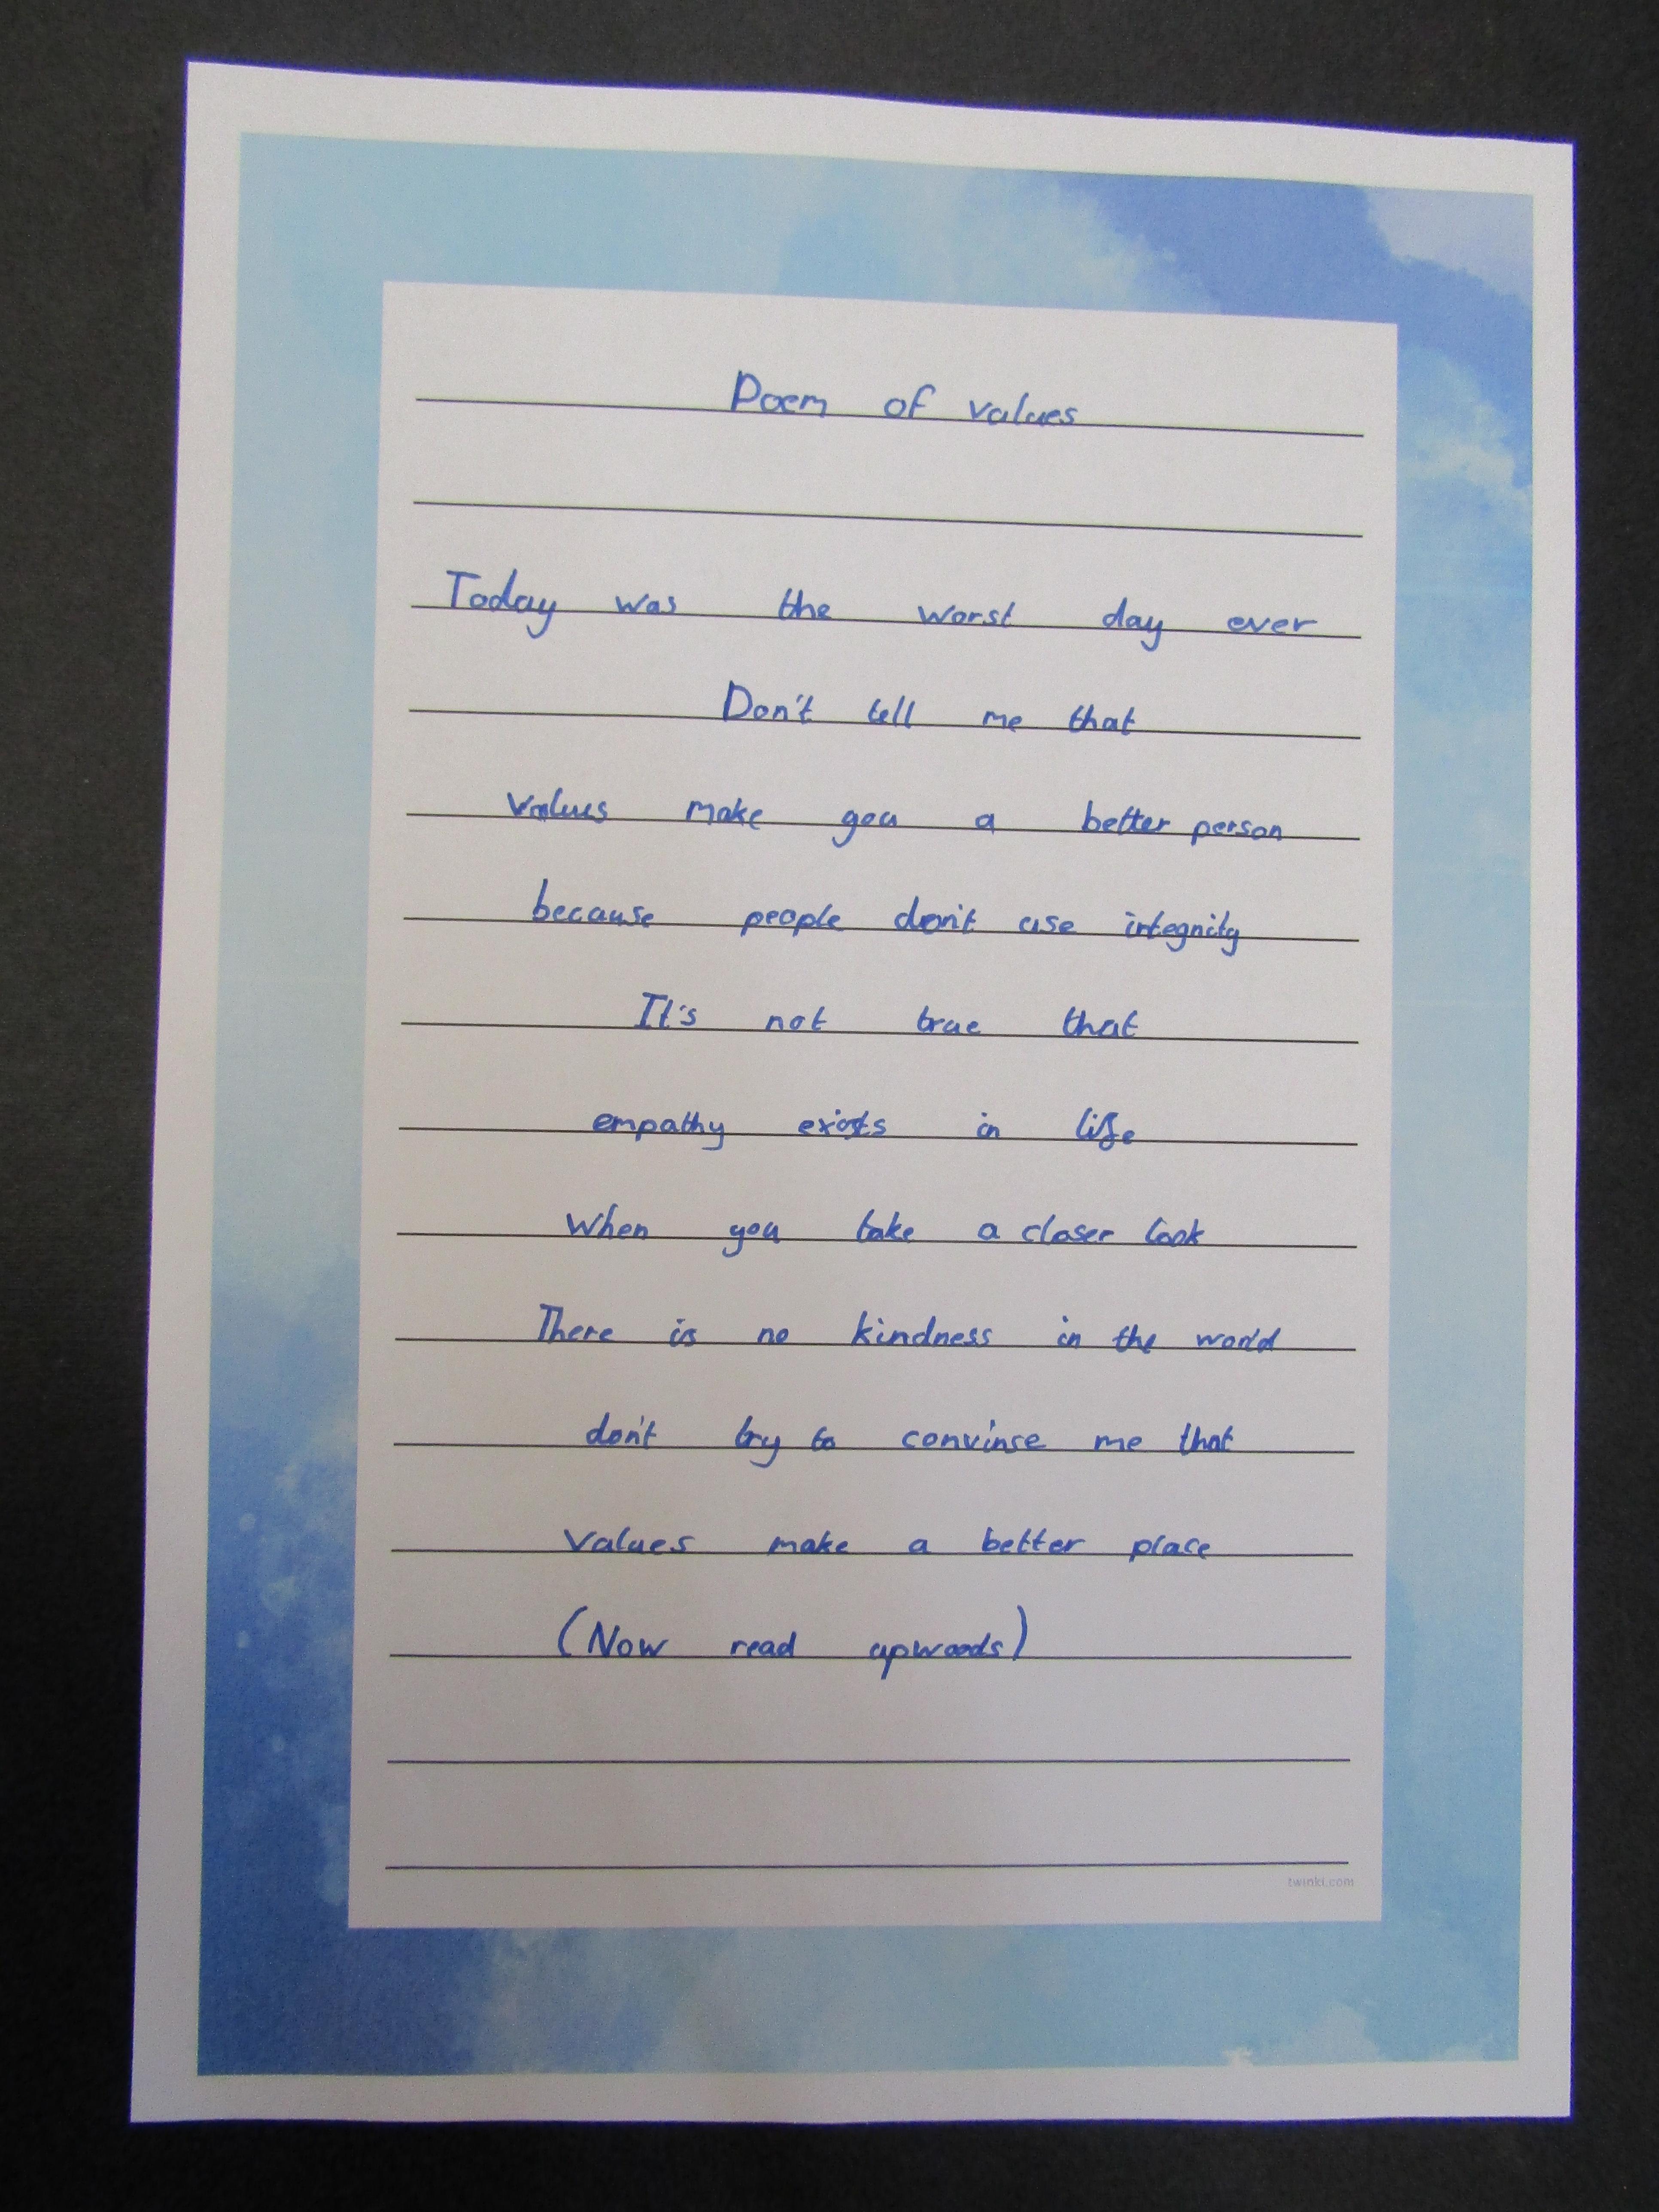 Poem of values
Today was the worst day ever
Don't tell me that
values make you a better person
because people don't use integrity
It's not true that
empathy exists in life
When you take a closer look
There is no kindness in the world
don't try to convinse me that
values make a better place
(Now read upwards)
twinkl.com